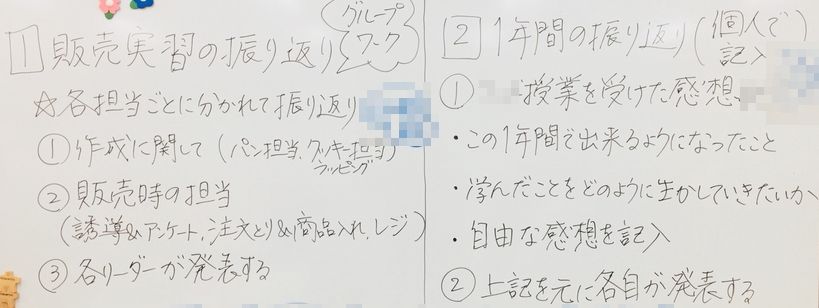 1 販売実習の振り返り グループワーク
☆各担当ごとに分かれて振り返り
①作成に関して(パン担当、クッキー担当、ラッピング)
②販売時の担当
(誘導&アンケート、注文とり&商品入れ、レジ)
③各リーダーが発表する
2 1年間の振り返り(個人で記入)
① 授業を受けた感想
・この1年間で出来るようになったこと
・学んだことをどのように生かしていきたいか
・自由な感想を記入
②上記を元に各自が発表する